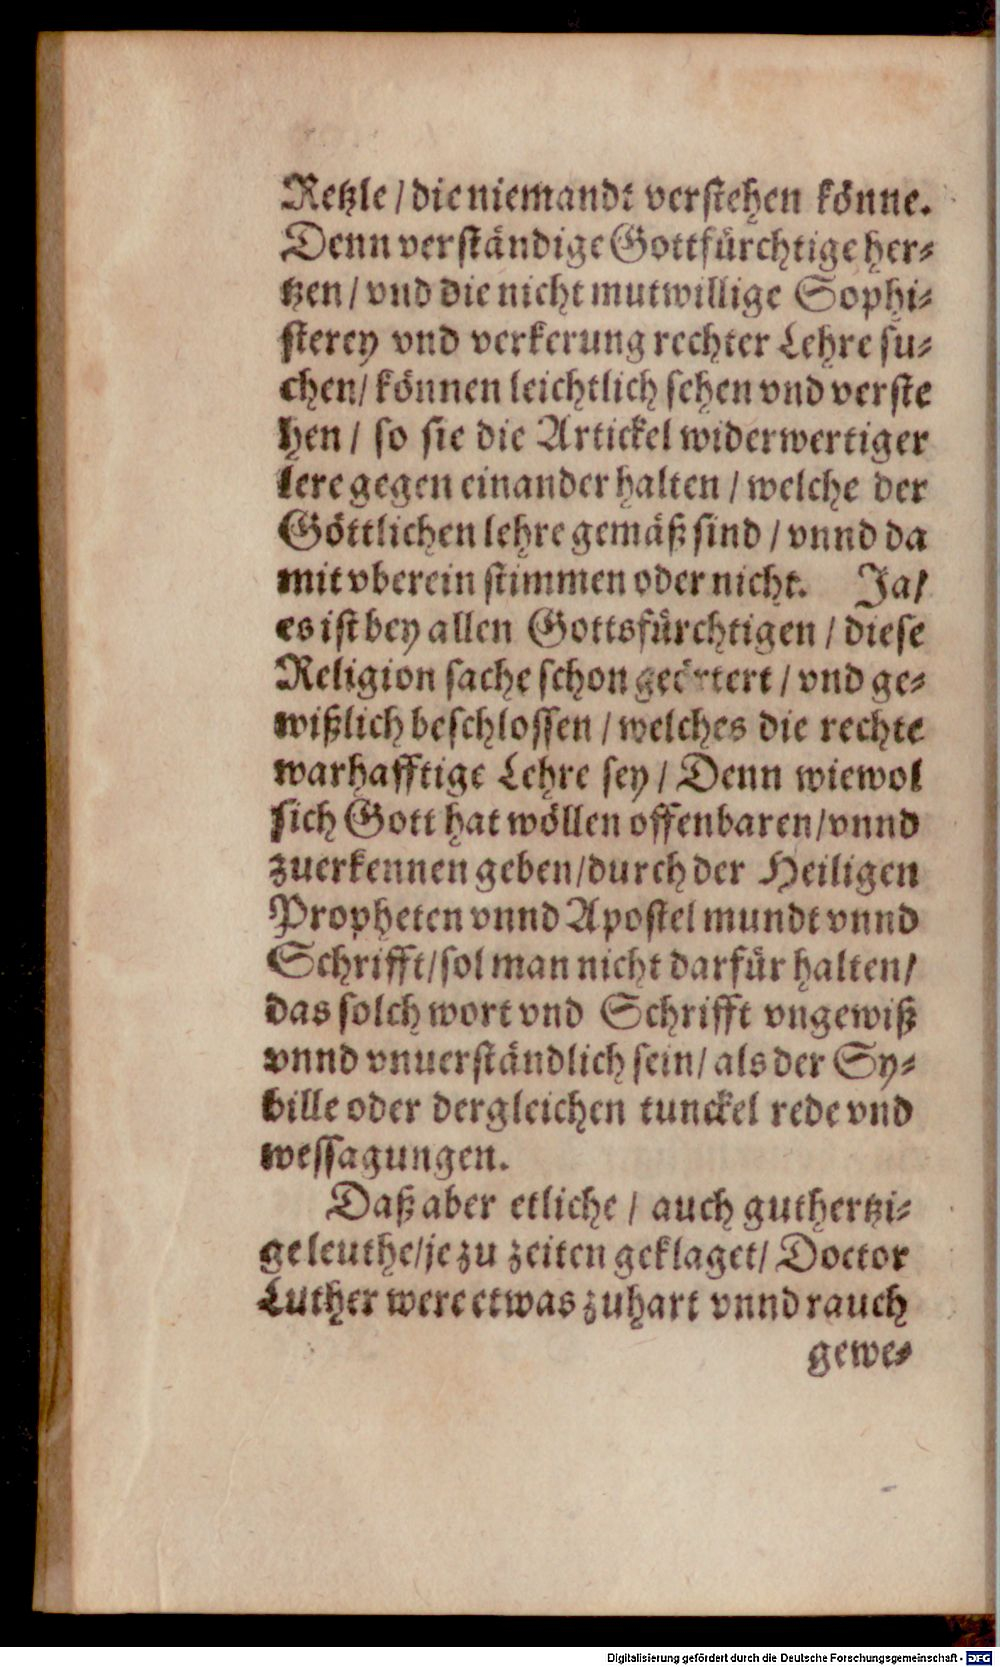 Retzle / die niemandt verstehen könne.
Denn verständige Gottfürchtige her⸗
tzen / vnd die nicht mutwillige Sophi⸗
sterey vnd verkerung rechter Lehre su⸗
chen / können leichtlich sehen vnd verste
hen / so sie die Artickel widerwertiger
lere gegen einander halten / welche der
Göttlichen lehre gemäß sind / vnnd da
mit vberein stimmen oder nicht. Ja /
es ist bey allen Gottsfürchtigen / diese
Religion sache schon geörtert / vnd ge⸗
wißlich beschlossen / welches die rechte
warhafftige Lehre sey / Denn wiewol
sich Gott hat wöllen offenbaren / vnnd
zuerkennen geben / durch der Heiligen
Propheten vnnd Apostel mundt vnnd
Schrifft / sol man nicht darfür halten /
das solch wort vnd Schrifft vngewiß
vnnd vnuerständlich sein / als der Sy⸗
bille oder dergleichen tunckel rede vnd
wessagungen.
Daß aber etliche / auch guthertzi⸗
ge leuthe / je zu zeiten geklaget / Doctor
Luther were etwas zuhart vnnd rauch
gewe⸗
Digitalisierung gefördert durch die Deutsche Forschungsgemeinschaft - DFG